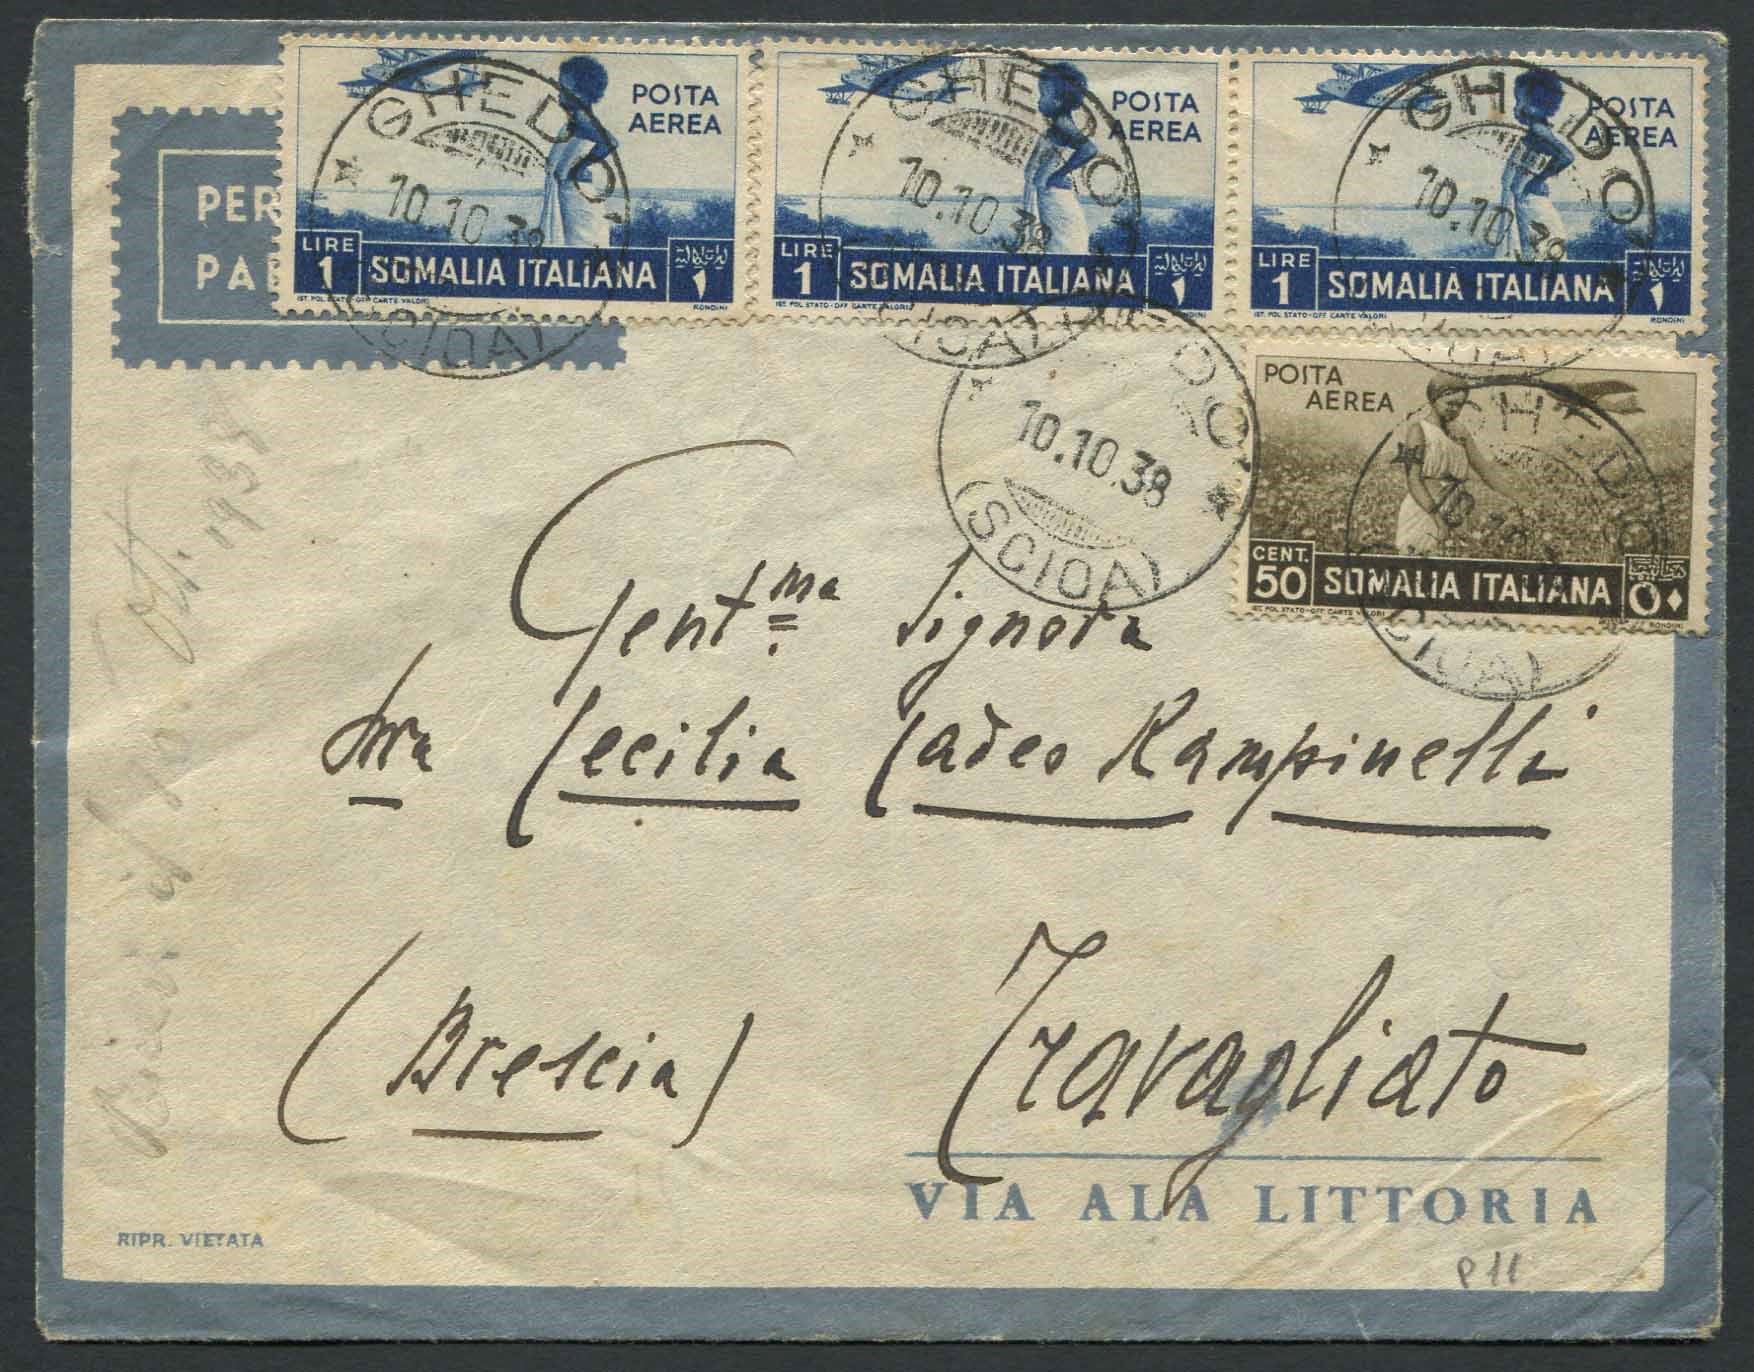 PER
PA
POSTA
AEREA
LIRE
1
SOMALIA ITALIANA
١
IST. POL. STATO - OFF. CARTE VALORI
RONDINI
POSTA
AEREA
LIRE
1
SOMALIA ITALIANA
١
IST. POL. STATO - OFF. CARTE VALORI
RONDINI
POSTA
AEREA
LIRE
1
SOMALIA ITALIANA
١
IST. POL. STATO - OFF. CARTE VALORI
RONDINI
GHEDO
10.10.38
(SCIOA)
GHEDO
10.10.38
(SCIOA)
GHEDO
10.10.38
DO
10.10.38
(SCIOA)
POSTA
AEREA
CENT.
50
SOMALIA ITALIANA
٥٠
IST. POL. STATO - OFF. CARTE VALORI
RONDINI
GHEDO
10.10
(SCIOA)
Gent.ma Signora
Sra Cecilia Cadeo Rampinelli
(Brescia) Travagliato
VIA ALA LITTORIA
RIPR. VIETATA
P 11
Ott. 1938